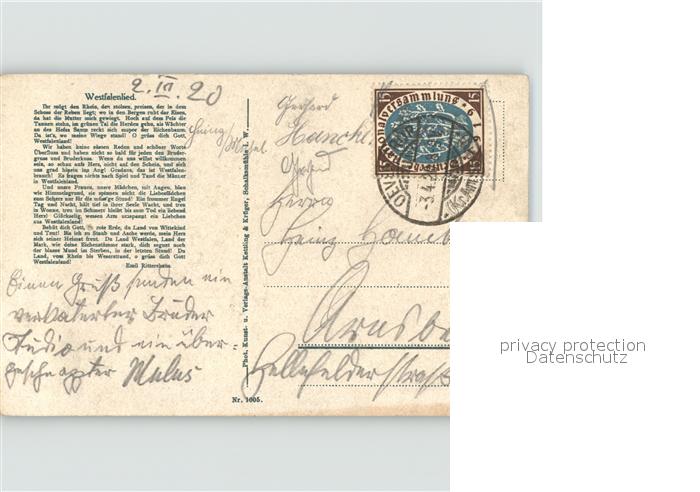 2. III. 20
Westfalenlied.
Ihr mögt den Rhein, den stolzen, preisen, der in dem
Schoss der Reben liegt; wo in den Bergen ruht das Eisen,
da hat die Mutter mich gewiegt. Hoch auf dem Fels die
Tannen stehn, im grünen Tal die Herden gehn, als Wächter
an des Hofes Saum reckt sich empor der Eichenbaum.
Da ist's, wo meine Wiege stand! O grüss dich Gott,
Westfalenland!
Wir haben keine süssen Reden und schöner Worte
Überfluss und haben nicht so bald für jeden den Bruder-
gruss und Bruderkuss. Wenn du uns willst willkommen
sein, so schau aufs Herz, nicht auf den Schein, und sieh
uns grad hinein ins Aug! Gradaus, das ist Westfalen-
brauch! Es fragen nichts nach Spiel und Tand die Männer
in Westfalenland.
Und unsre Frauen, unsre Mädchen, mit Augen, blau
wie Himmelsgrund, sie spinnen nicht die Liebesfädchen
zum Scherz nur für die müss'ge Stund! Ein frommer Engel
Tag und Nacht, hält tief in ihrer Seele Wacht, und treu
in Wonne, treu im Schmerz bleibt bis zum Tod ein liebend
Herz! Glückselig, wessen Arm umspannt ein Liebchen
aus Westfalenland!
Behüt dich Gott, rote Erde, du Land von Wittekind
und Teut! Bis ich zu Staub und Asche werde, mein Herz
sich seiner Heimat freut. Du Land Westfalen, Land der
Mark, wie deine Eichenstämme stark, dich segnet noch
der blasse Mund im Sterben, in der letzten Stund! Du
Land, vom Rhein bis Weserstrand, o grüss dich Gott
Westfalenland!
Emil Rittershaus
Einen Gruß senden ein
verkaterter Bruder
Studio und ein über-
geschnappter Mulus
Phot. Kunst- u. Verlags-Anstalt Kettling & Krüger, Schalksmühle i. W.
Nr. 1605.
Gerhard
Nationalversammlung
1919
15
Herrn
Heinz
Arnsbe
Hellefelderstraß
privacy protection
Datenschutz